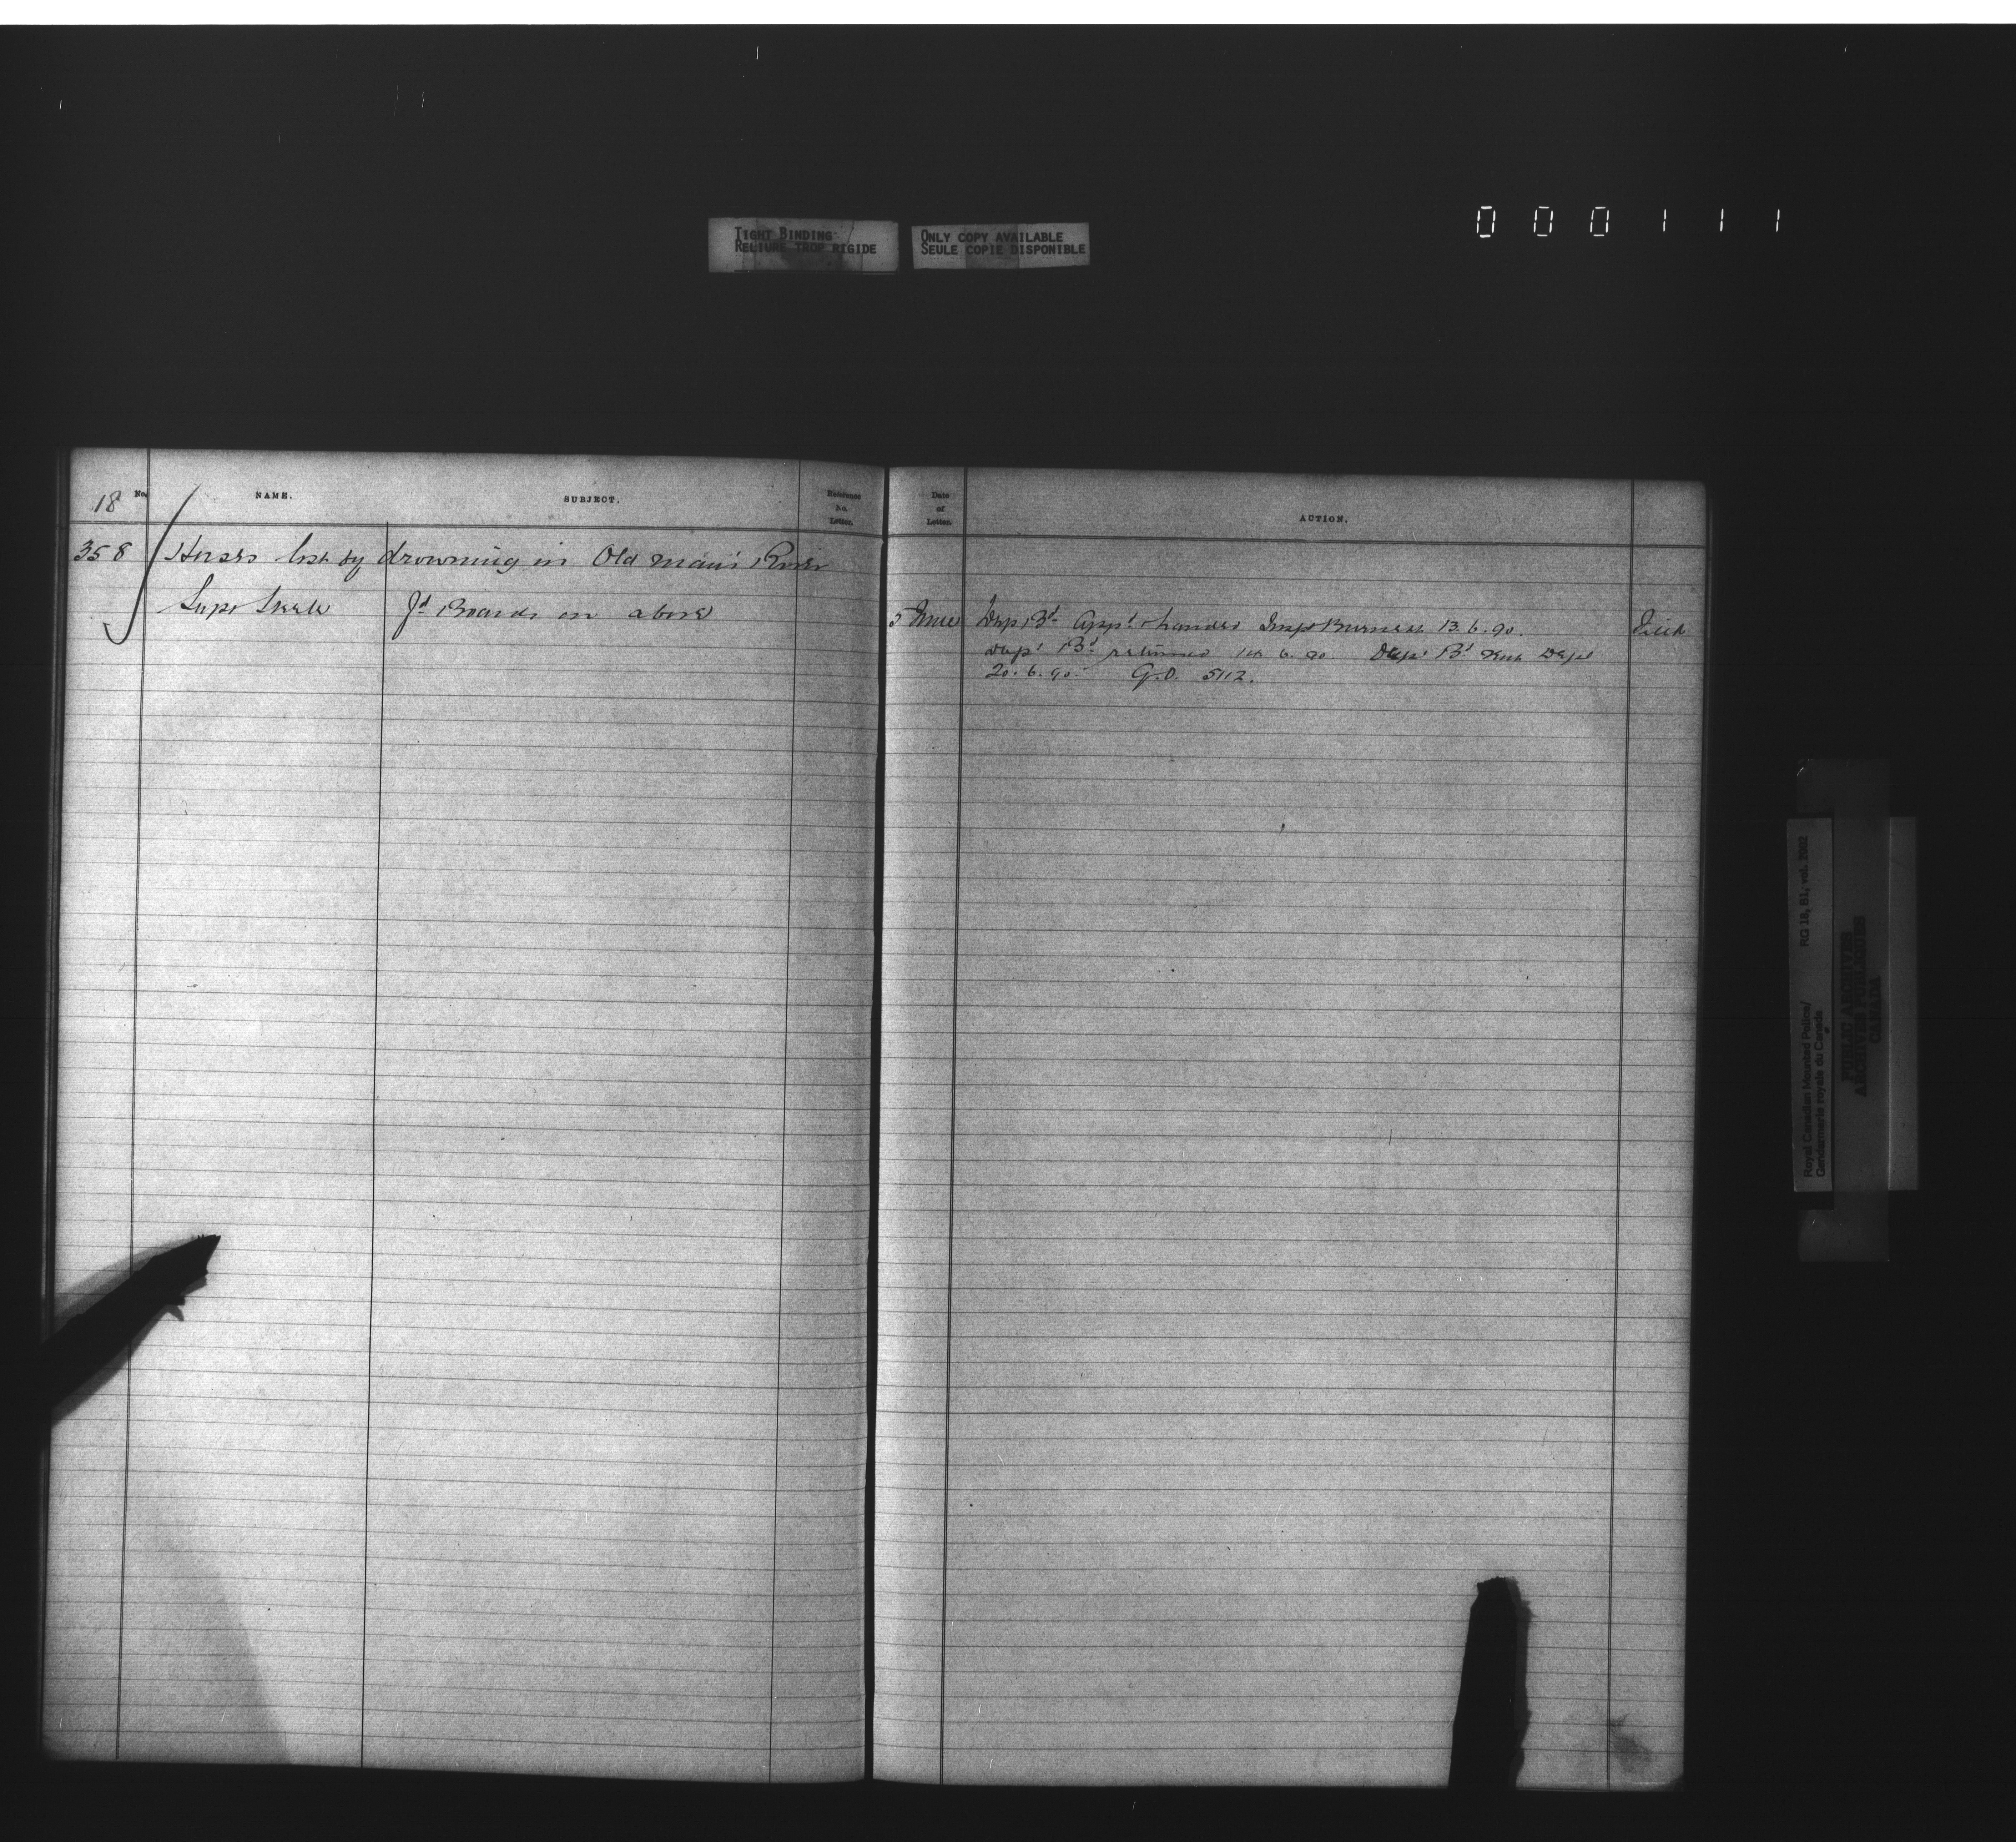 TIGHT BINDING
RELIURE TROP RIGIDE
ONLY COPY AVAILABLE
SEULE COPIE DISPONIBLE
000111
18 No. NAME. SUBJECT. Reference No. Letter. Date of Letter. ACTION.
358 Horses lost by drowning in Old man's River
Supt Steele fd Boards on above 5 June Dup. Bd appd & handed Insp Burness 13.6.90.
dupt Bd returned 14.6.90. Dupt Bd Dept
20.6.90. G.O. 5112.
Royal Canadian Mounted Police/ RG 18, B1, vol. 2002
Gendarmerie royale du Canada
PUBLIC ARCHIVES
ARCHIVES PUBLIQUES
CANADA